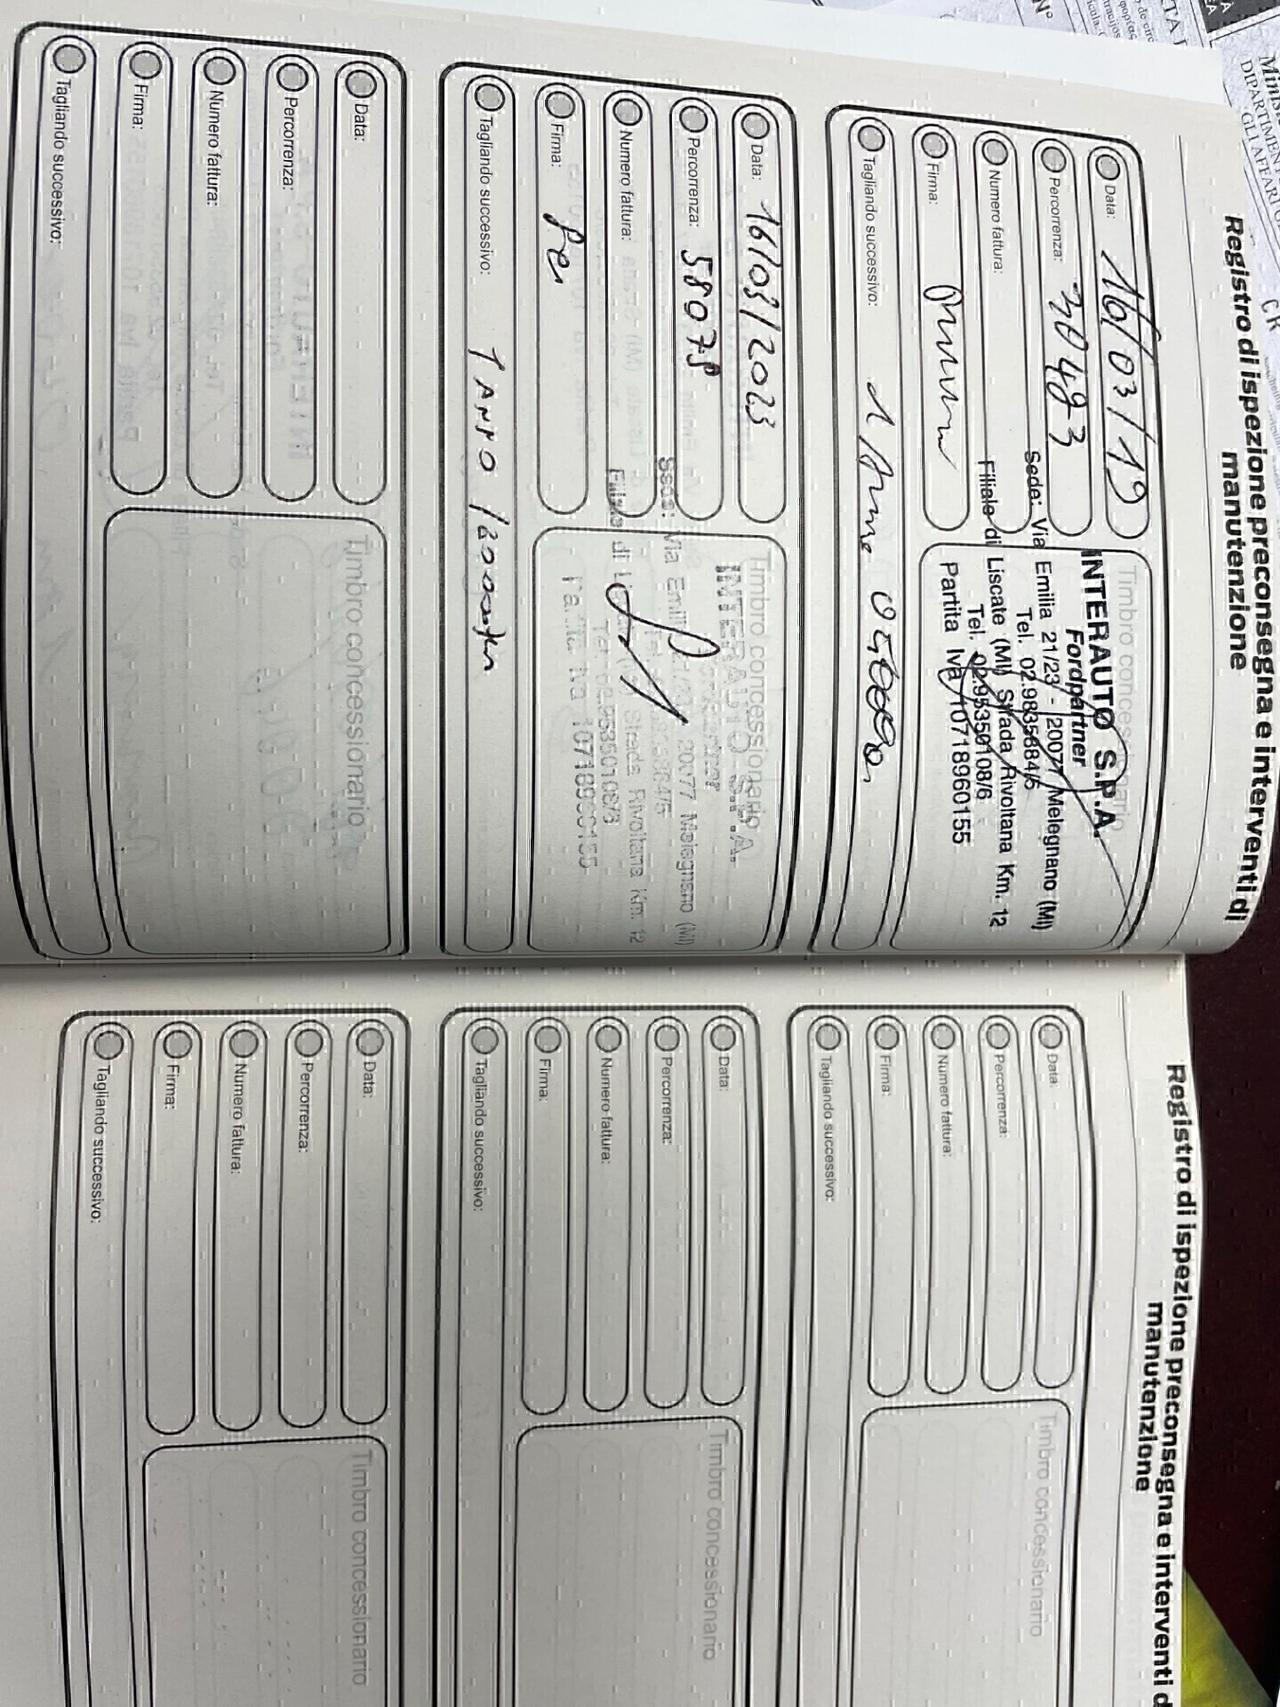 Registro di ispezione preconsegna e interventi di
manutenzione
Data: 16/03/19
Percorrenza: 30493
Numero fattura:
Firma:
Tagliando successivo: 1
Timbro concessionario
INTERAUTO S.P.A.
Fordpartner
Sede: Via Emilia 21/23 - 20077 Melegnano (MI)
Tel. 02.9835684/5
Filiale di Liscate (MI) Strada Rivoltana Km. 12
Tel. 02.95350108/6
Partita Iva 10718960155
Data: 16/03/2023
Percorrenza: 58075
Numero fattura:
Firma:
Tagliando successivo: 1 ANNO
Timbro concessionario
INTERAUTO S.P.A.
Sede: Via Emilia 20077 Melegnano (MI)
Filiale di Strada Rivoltana Km. 12
Partita Iva 10718960155
Data:
Percorrenza:
Numero fattura:
Firma:
Tagliando successivo:
Timbro concessionario
Registro di ispezione preconsegna e interventi d
manutenzione
Data:
Percorrenza:
Numero fattura:
Firma:
Tagliando successivo:
Timbro concessionario
Data:
Percorrenza:
Numero fattura:
Firma:
Tagliando successivo:
Timbro concessionario
Data:
Percorrenza:
Numero fattura:
Firma:
Tagliando successivo:
Timbro concessionario